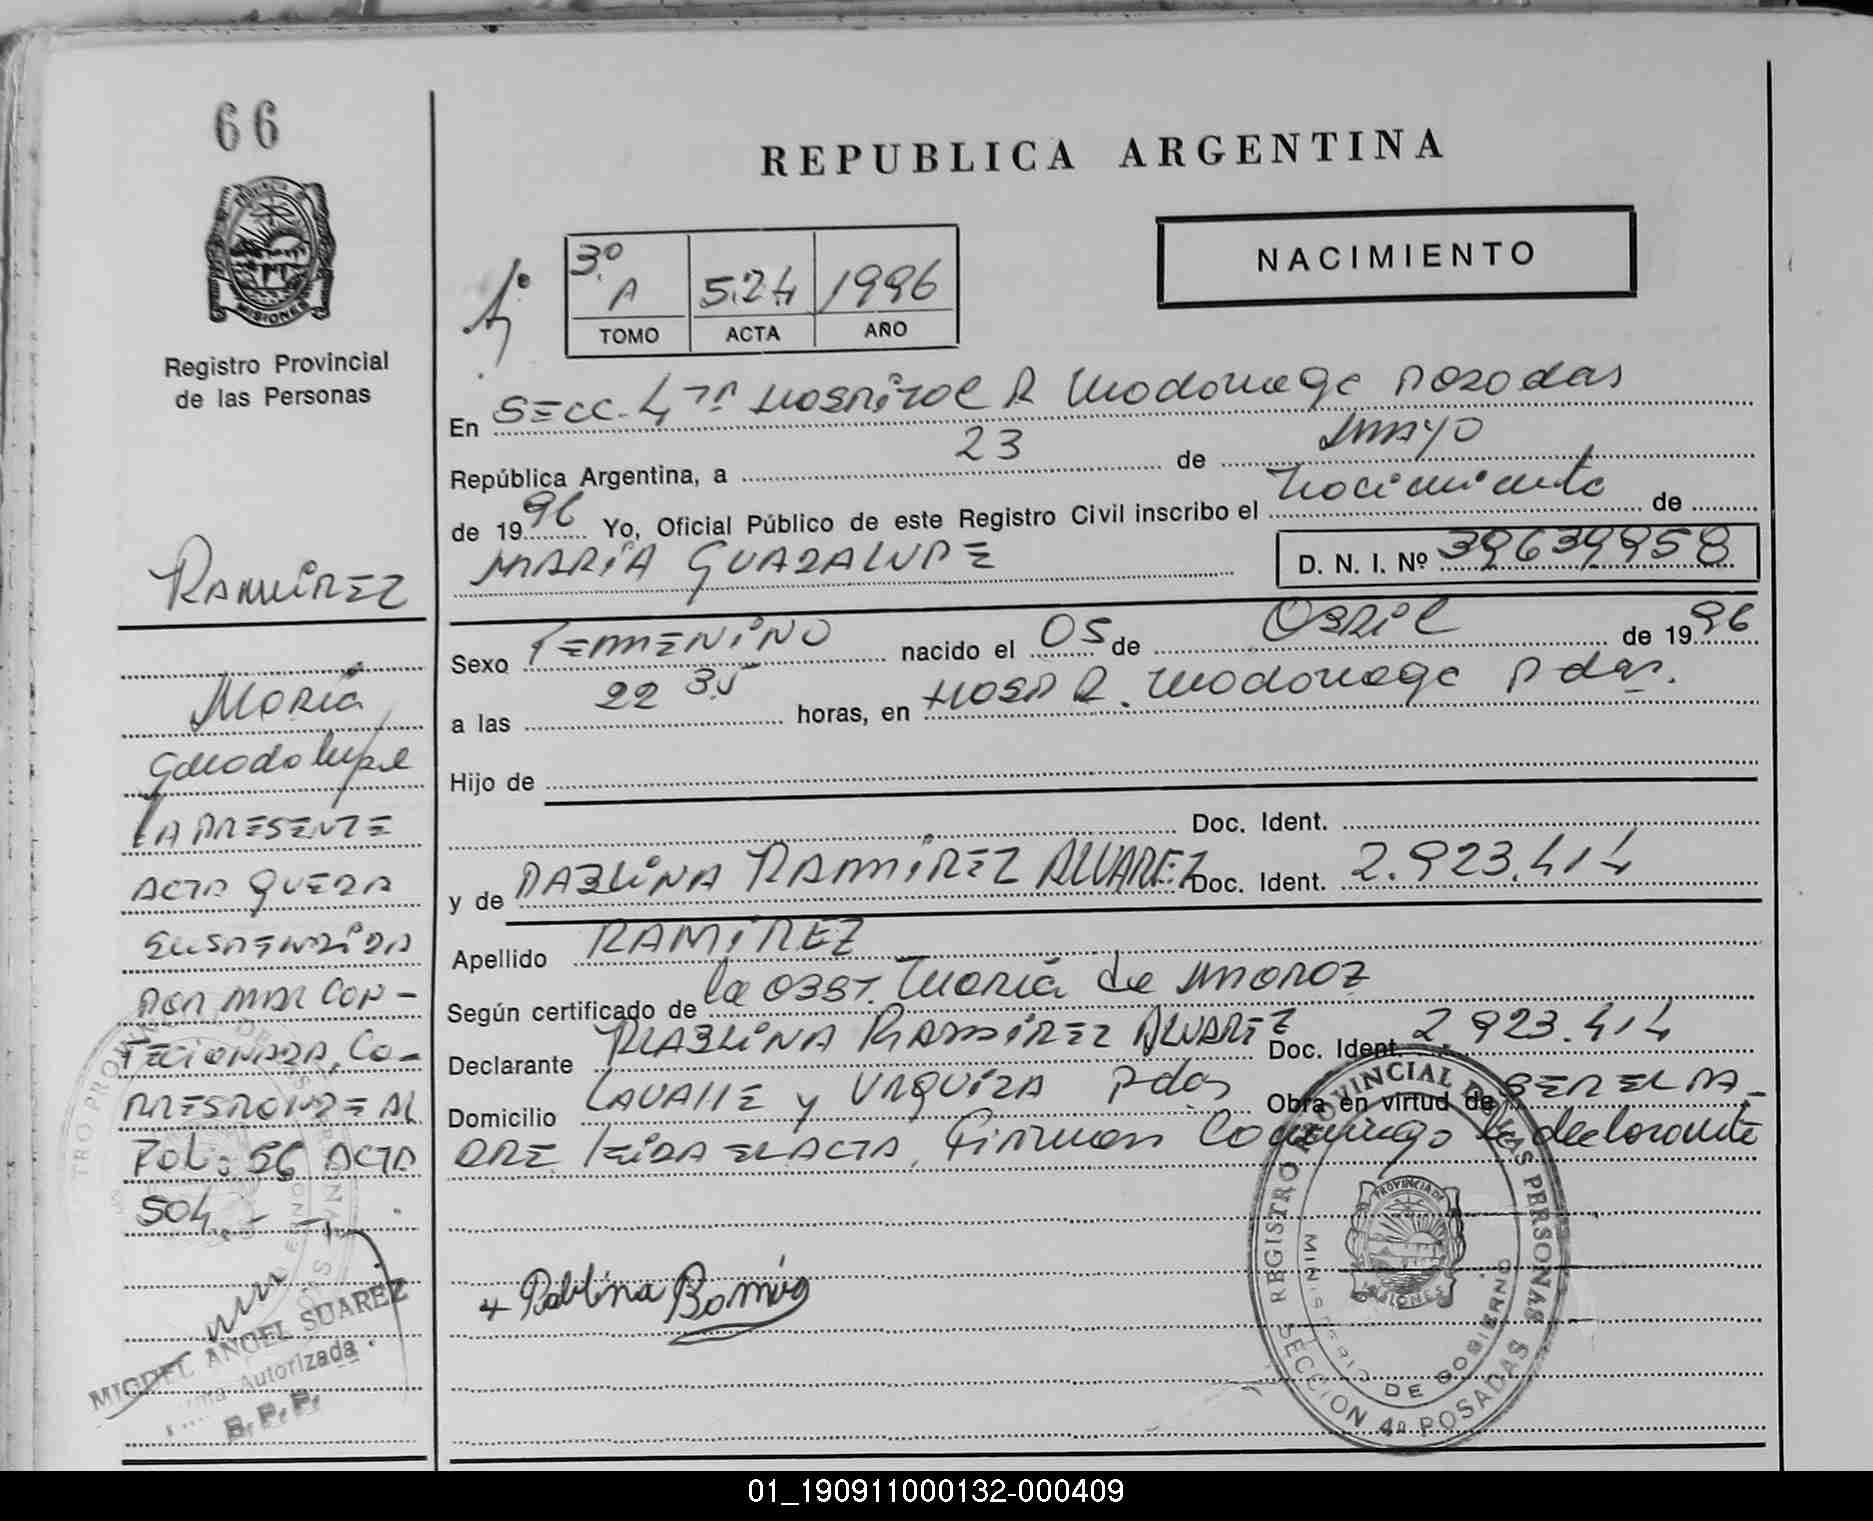 66
REPUBLICA ARGENTINA
PROVINCIA DE
MISIONES
Registro Provincial
de las Personas
3º A 524 1996
TOMO ACTA AÑO
NACIMIENTO
En SECC. 4ta HOSPITAL R Madariaga POSADAS
República Argentina, a 23 de MAYO
de 1996 Yo, Oficial Público de este Registro Civil inscribo el Nacimiento de
MARIA GUADALUPE D. N. I. Nº 39639958
Sexo FEMENINO nacido el 05 de ABRIL de 1996
a las 22 35 horas, en HOSP R. Madariaga Pdas.
Hijo de
Doc. Ident.
y de PABLINA RAMIREZ ALVAREZ Doc. Ident. 2.923.414
Apellido RAMIREZ
Según certificado de la OBST. María de
Declarante PABLINA RAMIREZ ALVAREZ Doc. Ident. 2.923.414
Domicilio LAVALLE y URQUIZA Pdas Obra en virtud de SER EL PA-
DRE LEIDA EL ACTA, Firman Conmigo la declarante
Pablina Ramirez
RAMIREZ
María
Guadalupe
LA PRESENTE
ACTA QUEDA
SUSPENDIDA
POR MAL CON-
FECIONADA, CO-
RRESPONDE AL
FOL: 56 ACTA
504.-
MIGUEL ANGEL SUAREZ
Firma Autorizada
R.P.P.
REGISTRO PROVINCIAL DE LAS PERSONAS
MINISTERIO DE GOBIERNO
PROVINCIA DE
MISIONES
SECCION 4ª POSADAS
01_190911000132-000409